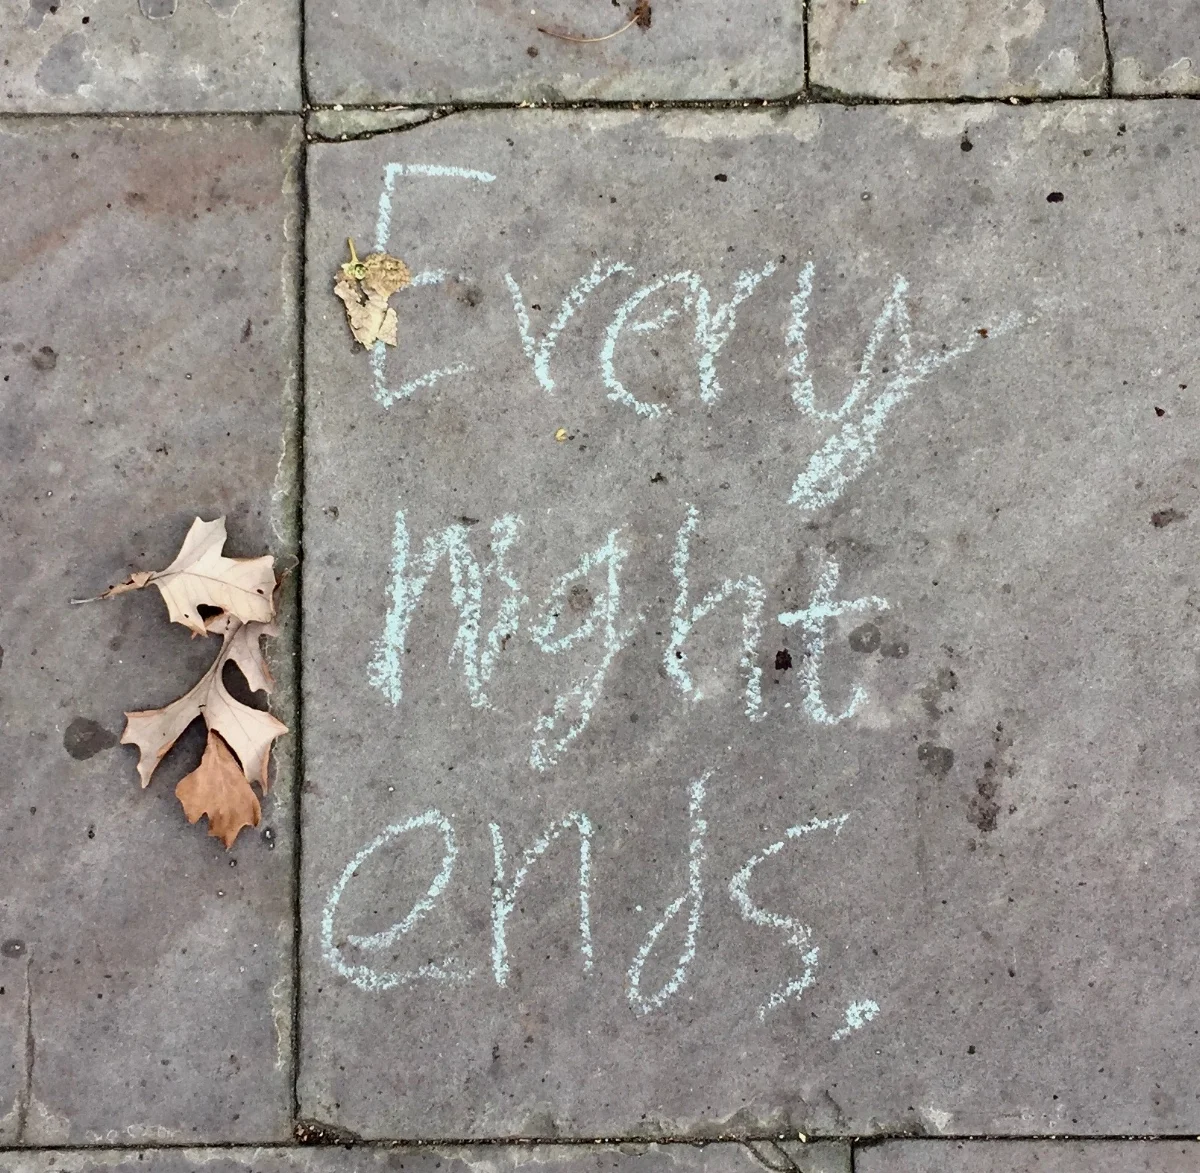 Every
night
ends.